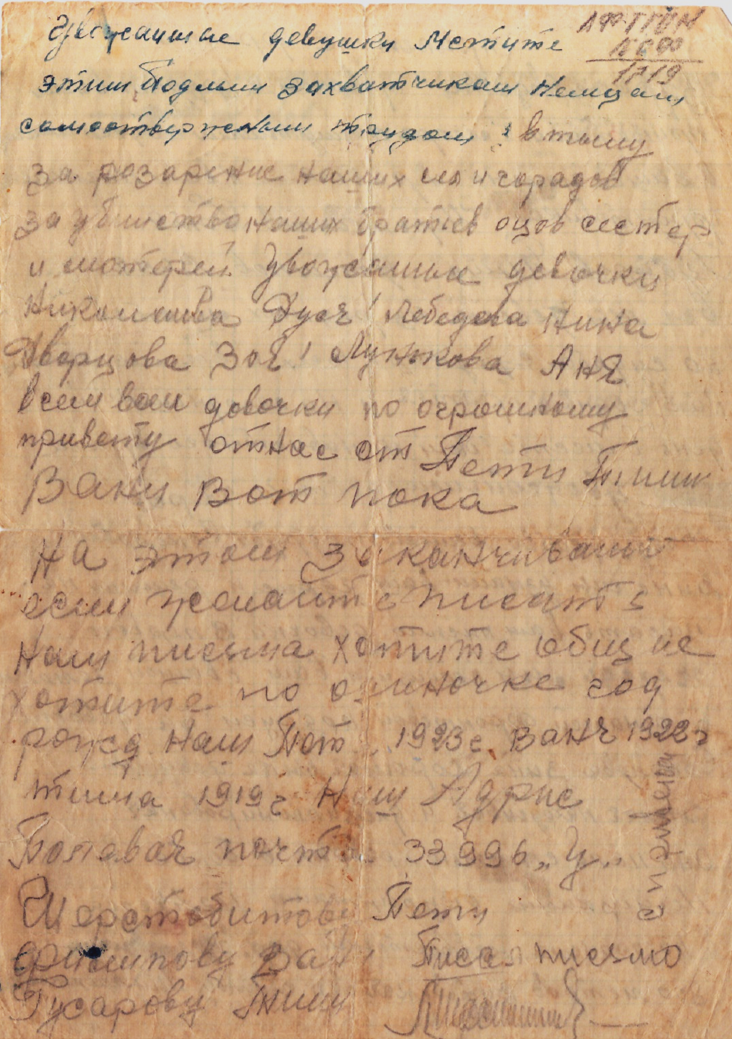 Уважаимые девушки Мстите
этим Подлым захватчикам Немцам
самоотверженым трудом в тылу
за розарение наших сел и горадов
за убийство наших братьев оцов сестер
и матерей. Уважаимые девочки
Николаева Дуся! Лебедева Нина
Дварцова Зоя! Лунькова Аня
всем вам девочки по огромному
привету от нас от Пети Тимы
Вани Вот пока
На этом заканчиваем
если желаите писать
нам письма хотите общие
хотите по одиночке год
рожд наш Пет. 1923 г. Ваня 1922 г
тима 1919 г Наш Адрис
Полевая почта 33996 „У„
Шерстобитову Пети
Филипову Вани Писал письмо
Гусарову Тимы